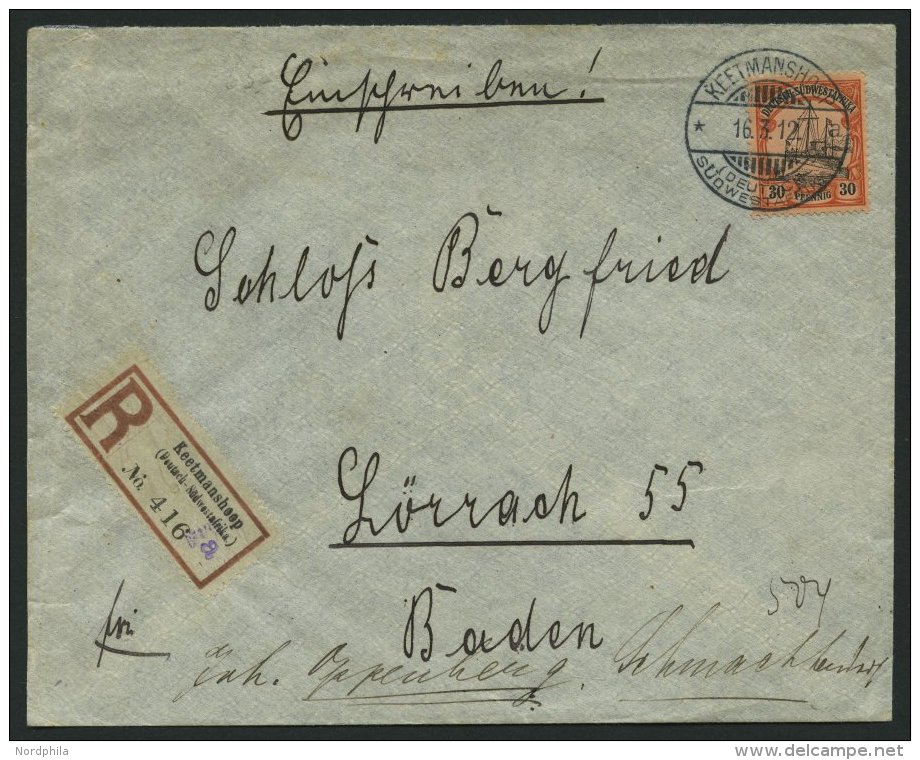 Einschreiben!
KEETMANSHO
16.3.12. a
(DEU
SÜDWESTA
DEUTSCH-SÜDWESTAFRIKA
30 PFENNIG 30
Schloss Bergfried
R
Keetmanshoop
(Deutsch-Südwestafrika.)
No. 416 a
Lörrach 55
Baden
frei
Joh. Oppenberg.
Nordphila
delcampe.net